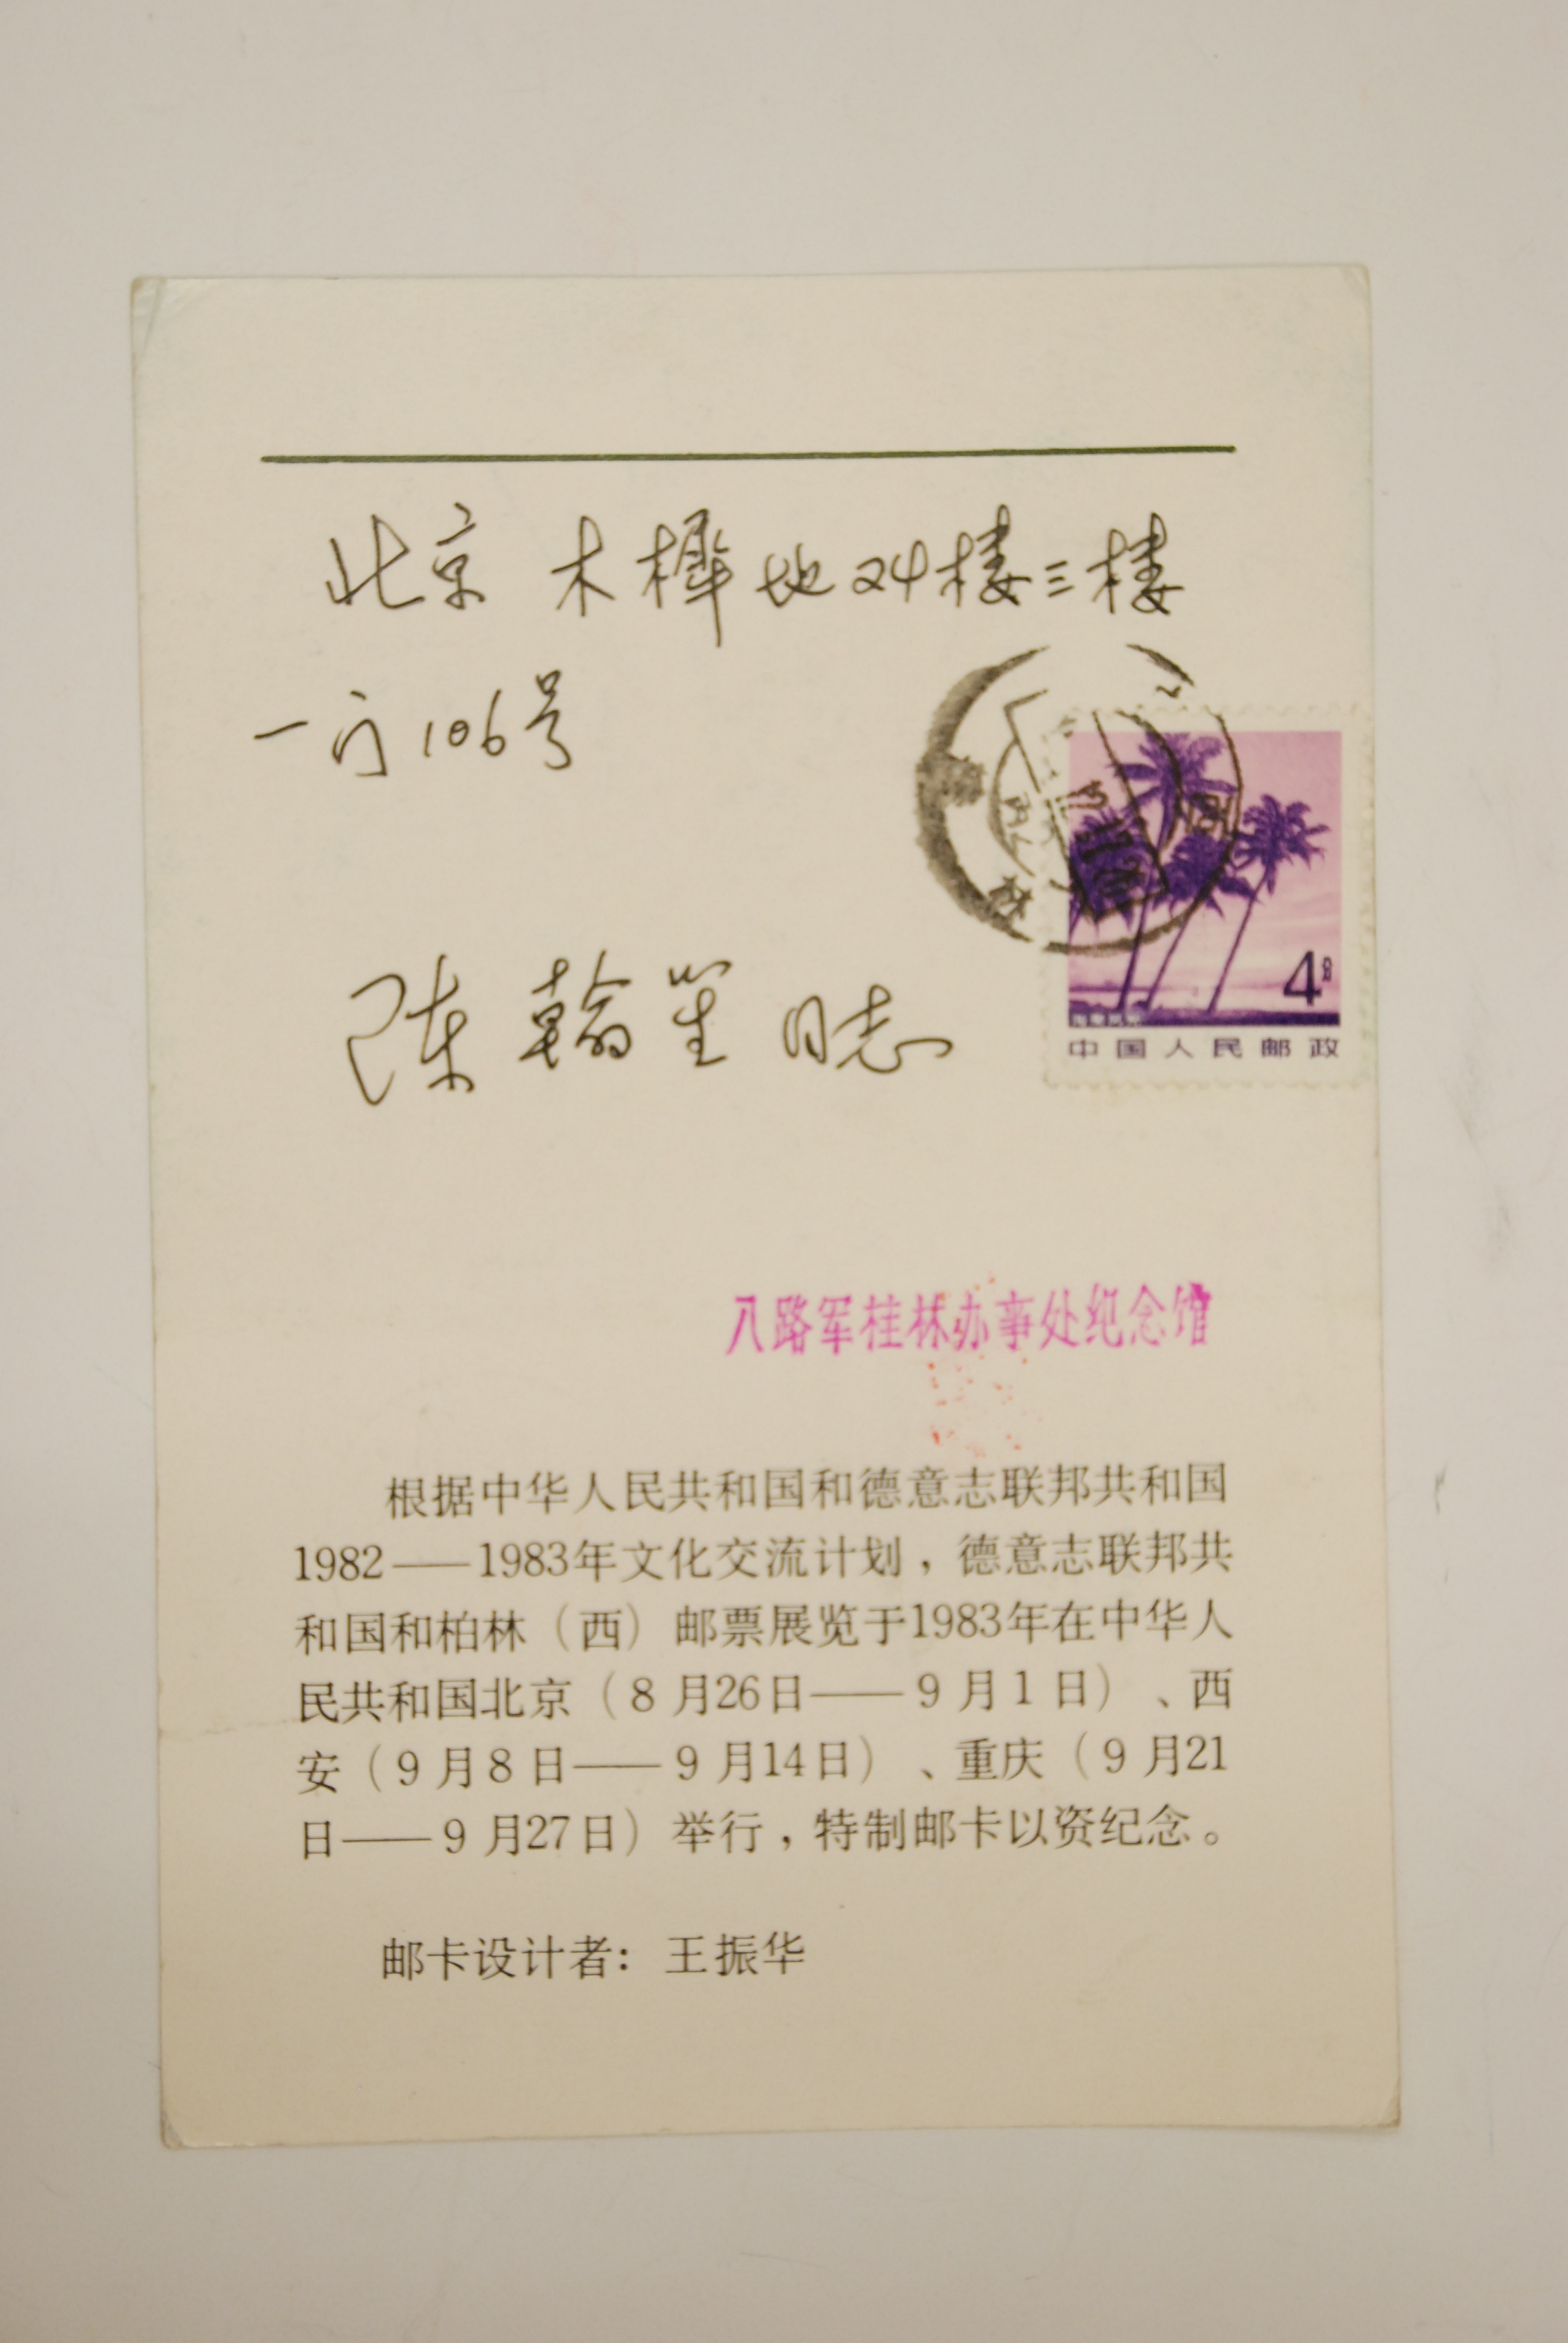 北京 木樨地24楼三楼
一门106号
4分
海南风光
中国人民邮政
陈翰笙同志
八路军桂林办事处纪念馆
根据中华人民共和国和德意志联邦共和国
1982——1983年文化交流计划，德意志联邦共
和国和柏林（西）邮票展览于1983年在中华人
民共和国北京（8月26日——9月1日）、西
安（9月8日——9月14日）、重庆（9月21
日——9月27日）举行，特制邮卡以资纪念。
邮卡设计者：王振华